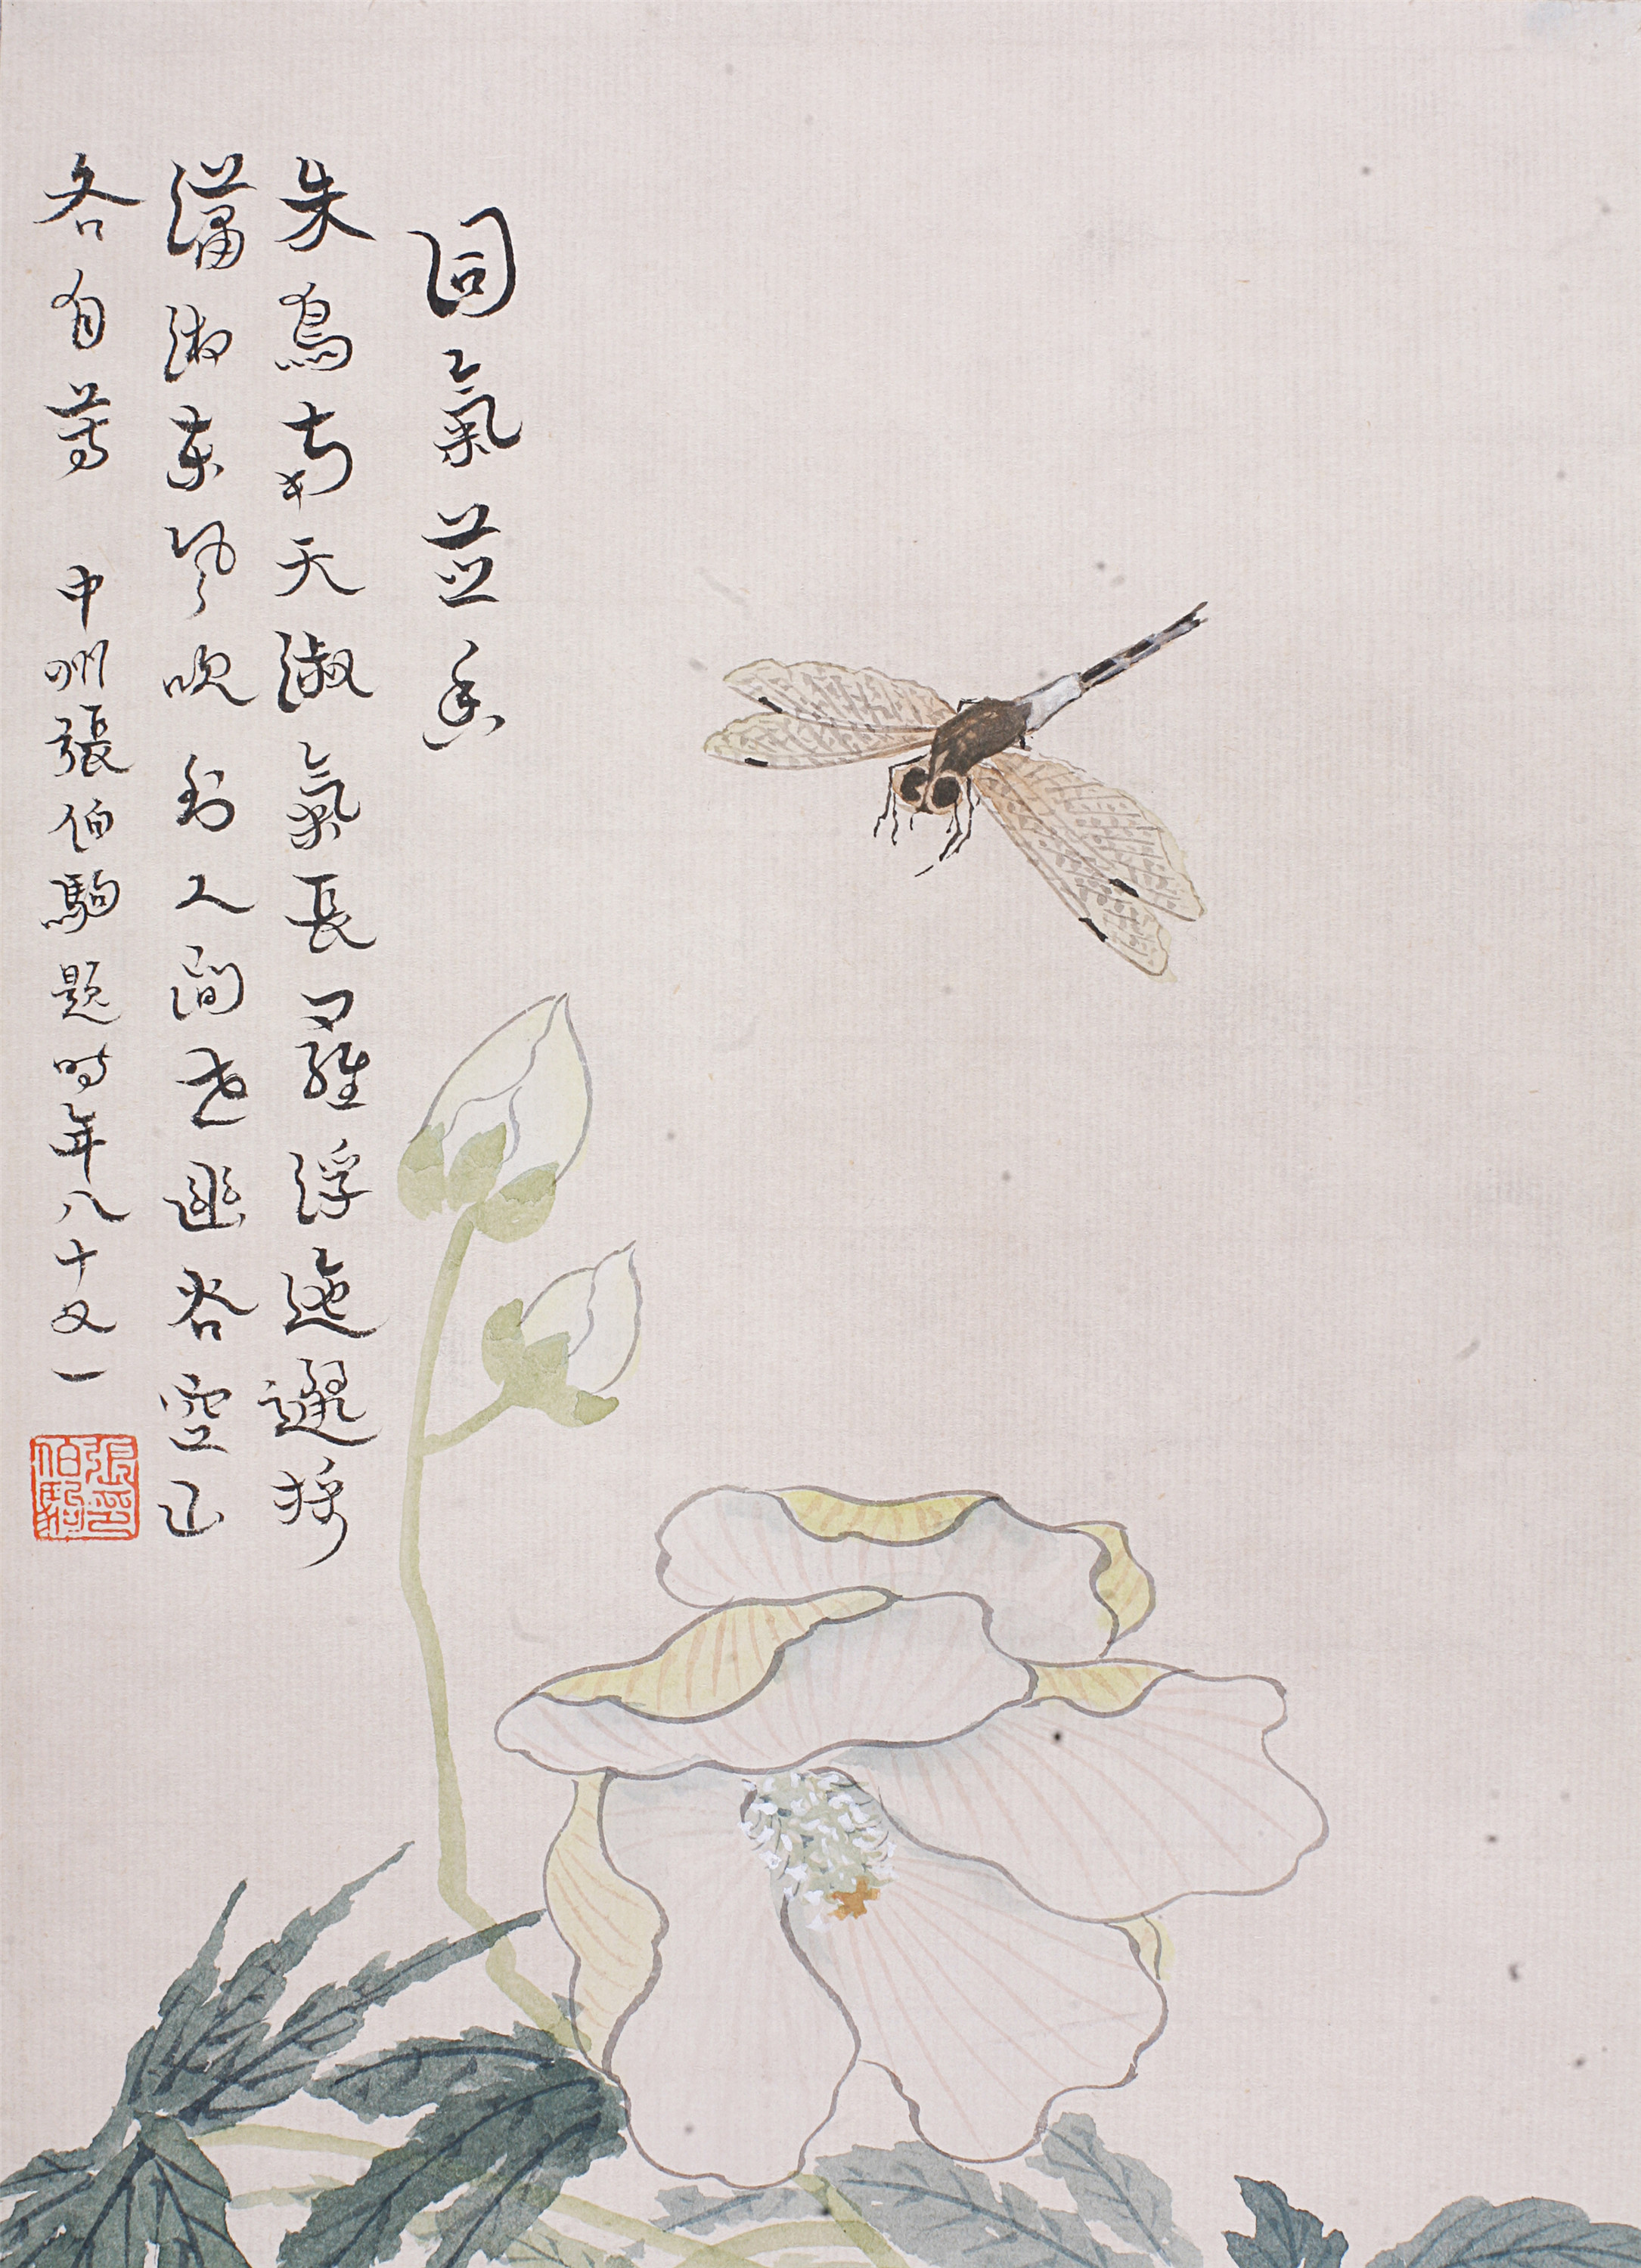 同氣並香
朱鳥南天淑氣長羅浮迤邐接
瀟湘東風吹到人間世幽谷空山
各自芳 中州張伯駒題時年八十又一
張伯駒印